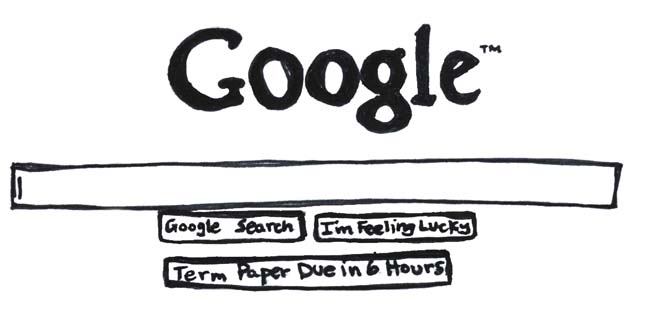 Google™
Google Search I'm Feeling Lucky
Term Paper Due in 6 Hours